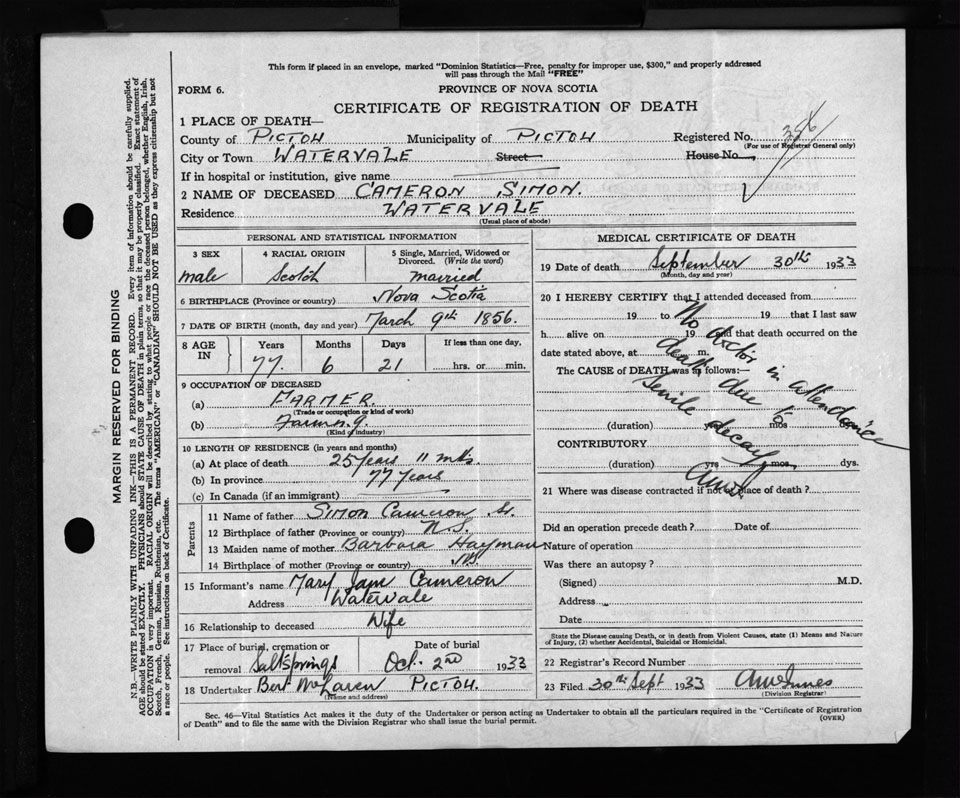 This form if placed in an envelope, marked "Dominion Statistics—Free, penalty for improper use, $300," and properly addressed
will pass through the Mail "FREE"
FORM 6.
PROVINCE OF NOVA SCOTIA
CERTIFICATE OF REGISTRATION OF DEATH
1 PLACE OF DEATH—
County of PICTOU Municipality of PICTOU Registered No. 356
(For use of Registrar General only)
City or Town WATERVALE Street House No.
If in hospital or institution, give name
2 NAME OF DECEASED CAMERON SIMON.
Residence WATERVALE
(Usual place of abode)
PERSONAL AND STATISTICAL INFORMATION
3 SEX 4 RACIAL ORIGIN 5 Single, Married, Widowed or
Divorced. (Write the word)
male Scotch married
6 BIRTHPLACE (Province or country) Nova Scotia
7 DATE OF BIRTH (month, day and year) March 9th 1856.
8 AGE IN Years Months Days If less than one day,
77. 6 21 hrs. or min.
9 OCCUPATION OF DECEASED
(a) FARMER.
(Trade or occupation or kind of work)
(b) Farming.
(Kind of industry)
10 LENGTH OF RESIDENCE (in years and months)
(a) At place of death 25 Years 11 mths.
(b) In province 77 Years
(c) In Canada (if an immigrant)
Parents
11 Name of father Simon Cameron Sr.
12 Birthplace of father (Province or country) N.S.
13 Maiden name of mother Barbara Hayman
14 Birthplace of mother (Province or country) NS.
15 Informant's name Mary Jane Cameron
Address Watervale
16 Relationship to deceased Wife
17 Place of burial, cremation or Date of burial
removal Saltsprings Oct. 2nd 1933
18 Undertaker Bert McLaren PICTOU.
(Name and address)
MEDICAL CERTIFICATE OF DEATH
19 Date of death September 30th 1933
(Month, day and year)
20 I HEREBY CERTIFY that I attended deceased from
19 to 19 that I last saw
h alive on 19 and that death occurred on
date stated above, at m.
The CAUSE of DEATH was as follows:—
No doctor in attendance
death due to
senile decay
AMcI
(duration) yrs mos dys.
CONTRIBUTORY
(duration) yrs mos. dys.
21 Where was disease contracted if not at place of death?
Did an operation precede death? Date of
Nature of operation
Was there an autopsy?
(Signed) M.D.
Address
Date
State the Disease causing Death, or in death from Violent Causes, state (1) Means and Nature
of Injury, (2) whether Accidental, Suicidal or Homicidal.
22 Registrar's Record Number
23 Filed 30th Sept 1933 AMcInnes
(Division Registrar)
Sec. 46—Vital Statistics Act makes it the duty of the Undertaker or person acting as Undertaker to obtain all the particulars required in the "Certificate of Registration
of Death" and to file the same with the Division Registrar who shall issue the burial permit.
(OVER)
MARGIN RESERVED FOR BINDING
N.B.—WRITE PLAINLY WITH UNFADING INK—THIS IS A PERMANENT RECORD. Every item of information should be carefully supplied.
AGE should be stated EXACTLY. PHYSICIANS should STATE CAUSE OF DEATH in plain terms, so that it may be properly classified. Exact statement of
OCCUPATION is very important. RACIAL ORIGIN will be described by stating to what people or race the deceased person belonged, whether English, Irish,
Scotch, French, German, Russian, Ruthenian, etc. The terms "AMERICAN" or "CANADIAN" SHOULD NOT BE USED as they express citizenship but not
a race or people. See instructions on back of Certificate.